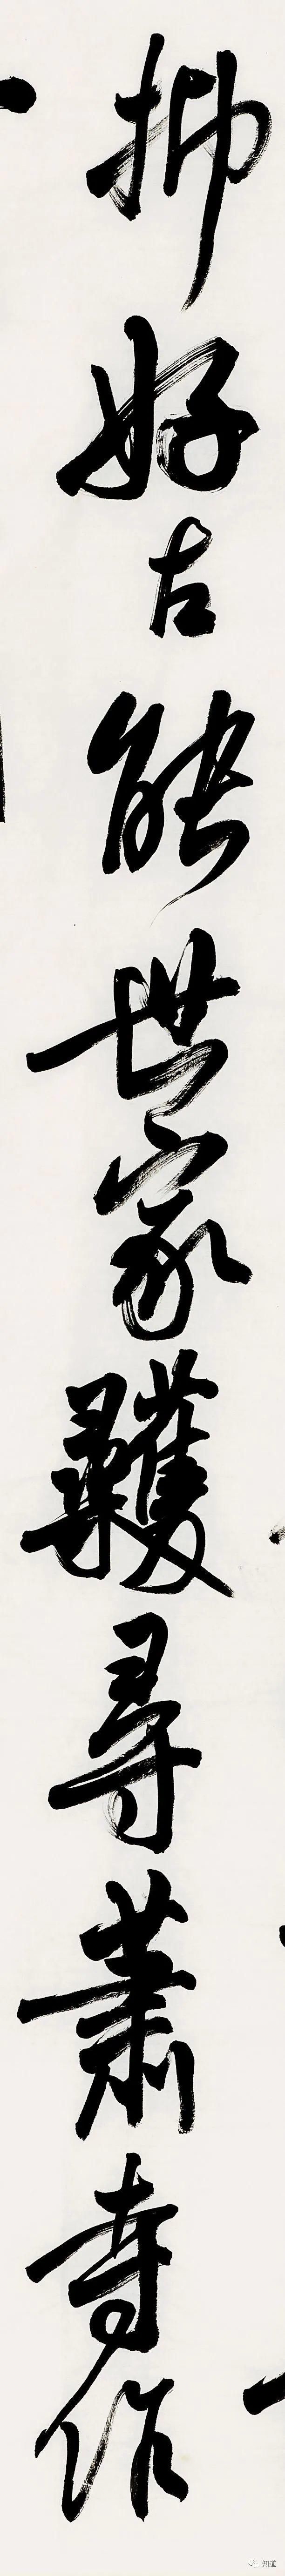 好古能世家彠尋蕭寺作